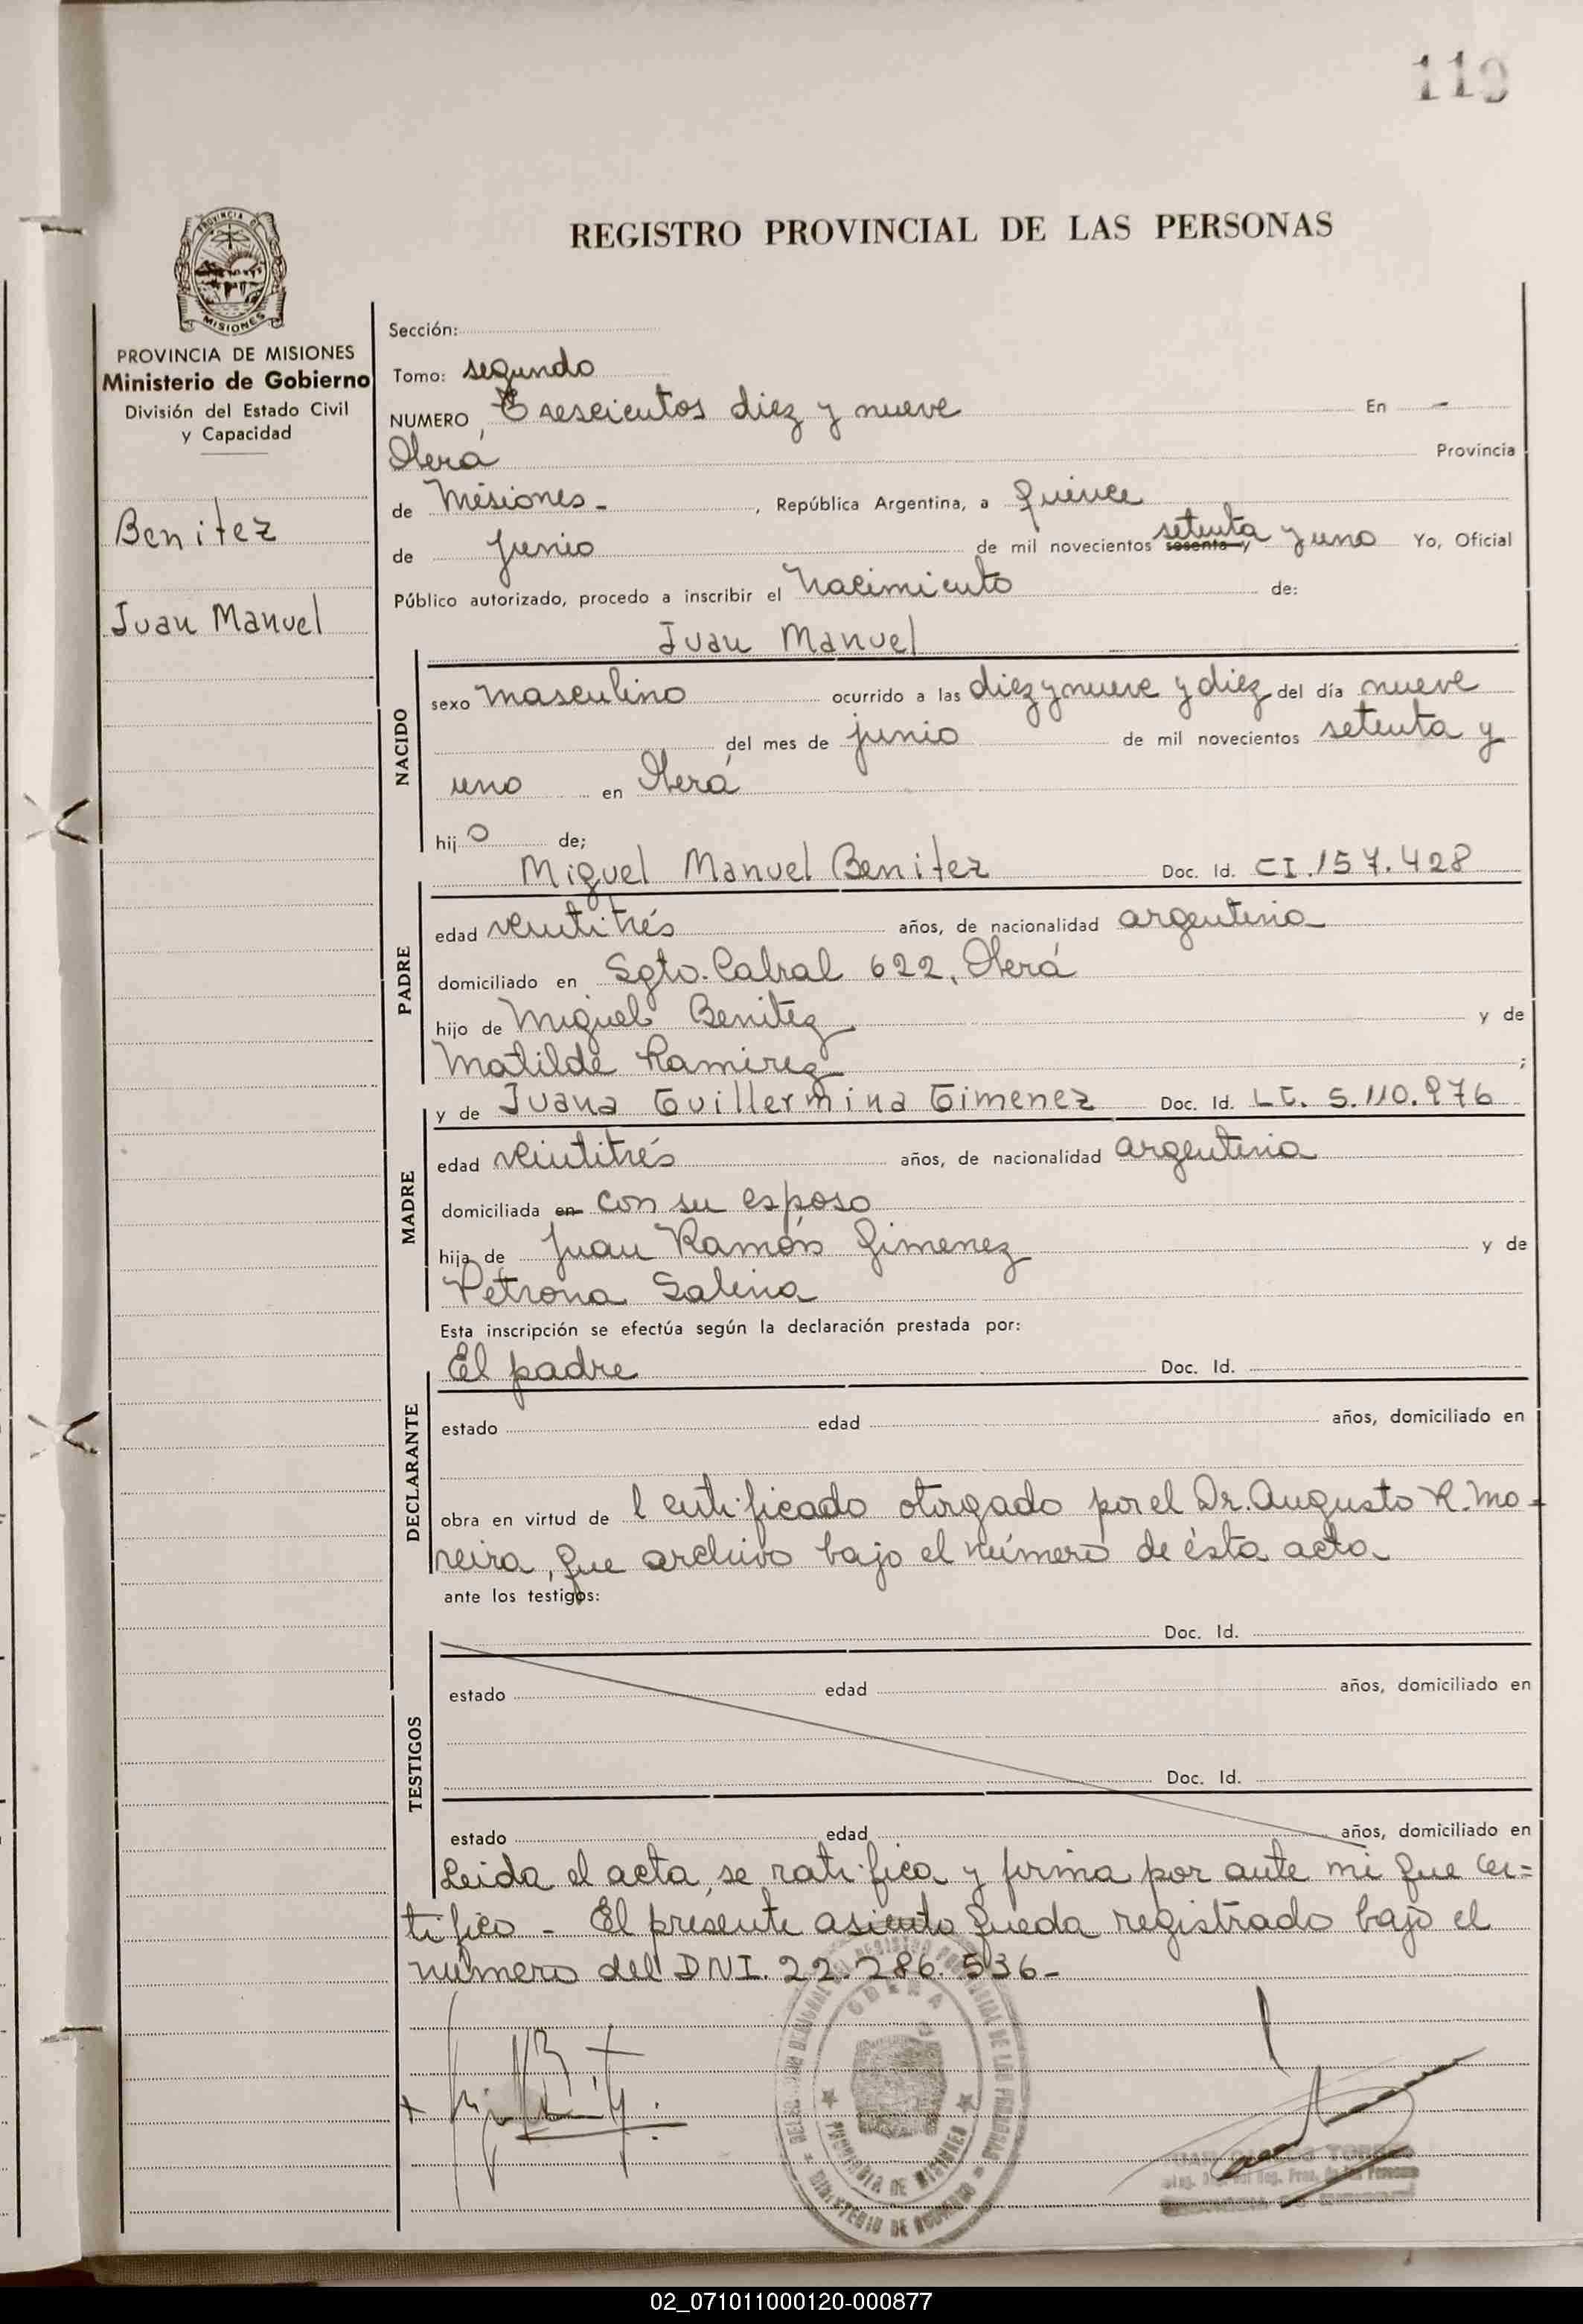 119
PROVINCIA DE
MISIONES
REGISTRO PROVINCIAL DE LAS PERSONAS
PROVINCIA DE MISIONES
Ministerio de Gobierno
División del Estado Civil
y Capacidad
Benitez
Juan Manuel
Sección:
Tomo: segundo
NUMERO Trescientos diez y nueve En -
Oberá Provincia
de Misiones - , República Argentina, a quince
de junio de mil novecientos sesenta y setenta y uno Yo, Oficial
Público autorizado, procedo a inscribir el Nacimiento de:
Juan Manuel
NACIDO
sexo masculino ocurrido a las diez y nueve y diez del día nueve
del mes de junio de mil novecientos setenta y
uno en Oberá
hijo de;
Miguel Manuel Benitez Doc. Id. CI. 157.428
PADRE
edad veintitrés años, de nacionalidad argentina
domiciliado en Sgto. Cabral 622, Oberá
hijo de Miguel Benitez y de
Matilde Ramirez ;
y de Juana Guillermina Gimenez Doc. Id. LC. 5.110.976
MADRE
edad veintitrés años, de nacionalidad argentina
domiciliada en con su esposo
hija de Juan Ramón Gimenez y de
Petrona Salina
Esta inscripción se efectúa según la declaración prestada por:
El padre Doc. Id.
DECLARANTE
estado edad años, domiciliado en
obra en virtud de Certificado otorgado por el Dr. Augusto R. Mo-
reira, que archivo bajo el número de ésta acta
ante los testigos:
Doc. Id.
TESTIGOS
estado edad años, domiciliado en
Doc. Id.
estado edad años, domiciliado en
Leida el acta, se ratifica y firma por ante mi que cer=
tifico - El presente asiento queda registrado bajo el
número del DNI. 22.286.536-
OBERA
PROVINCIA DE MISIONES
MINISTERIO DE GOBIERNO
02_071011000120-000877